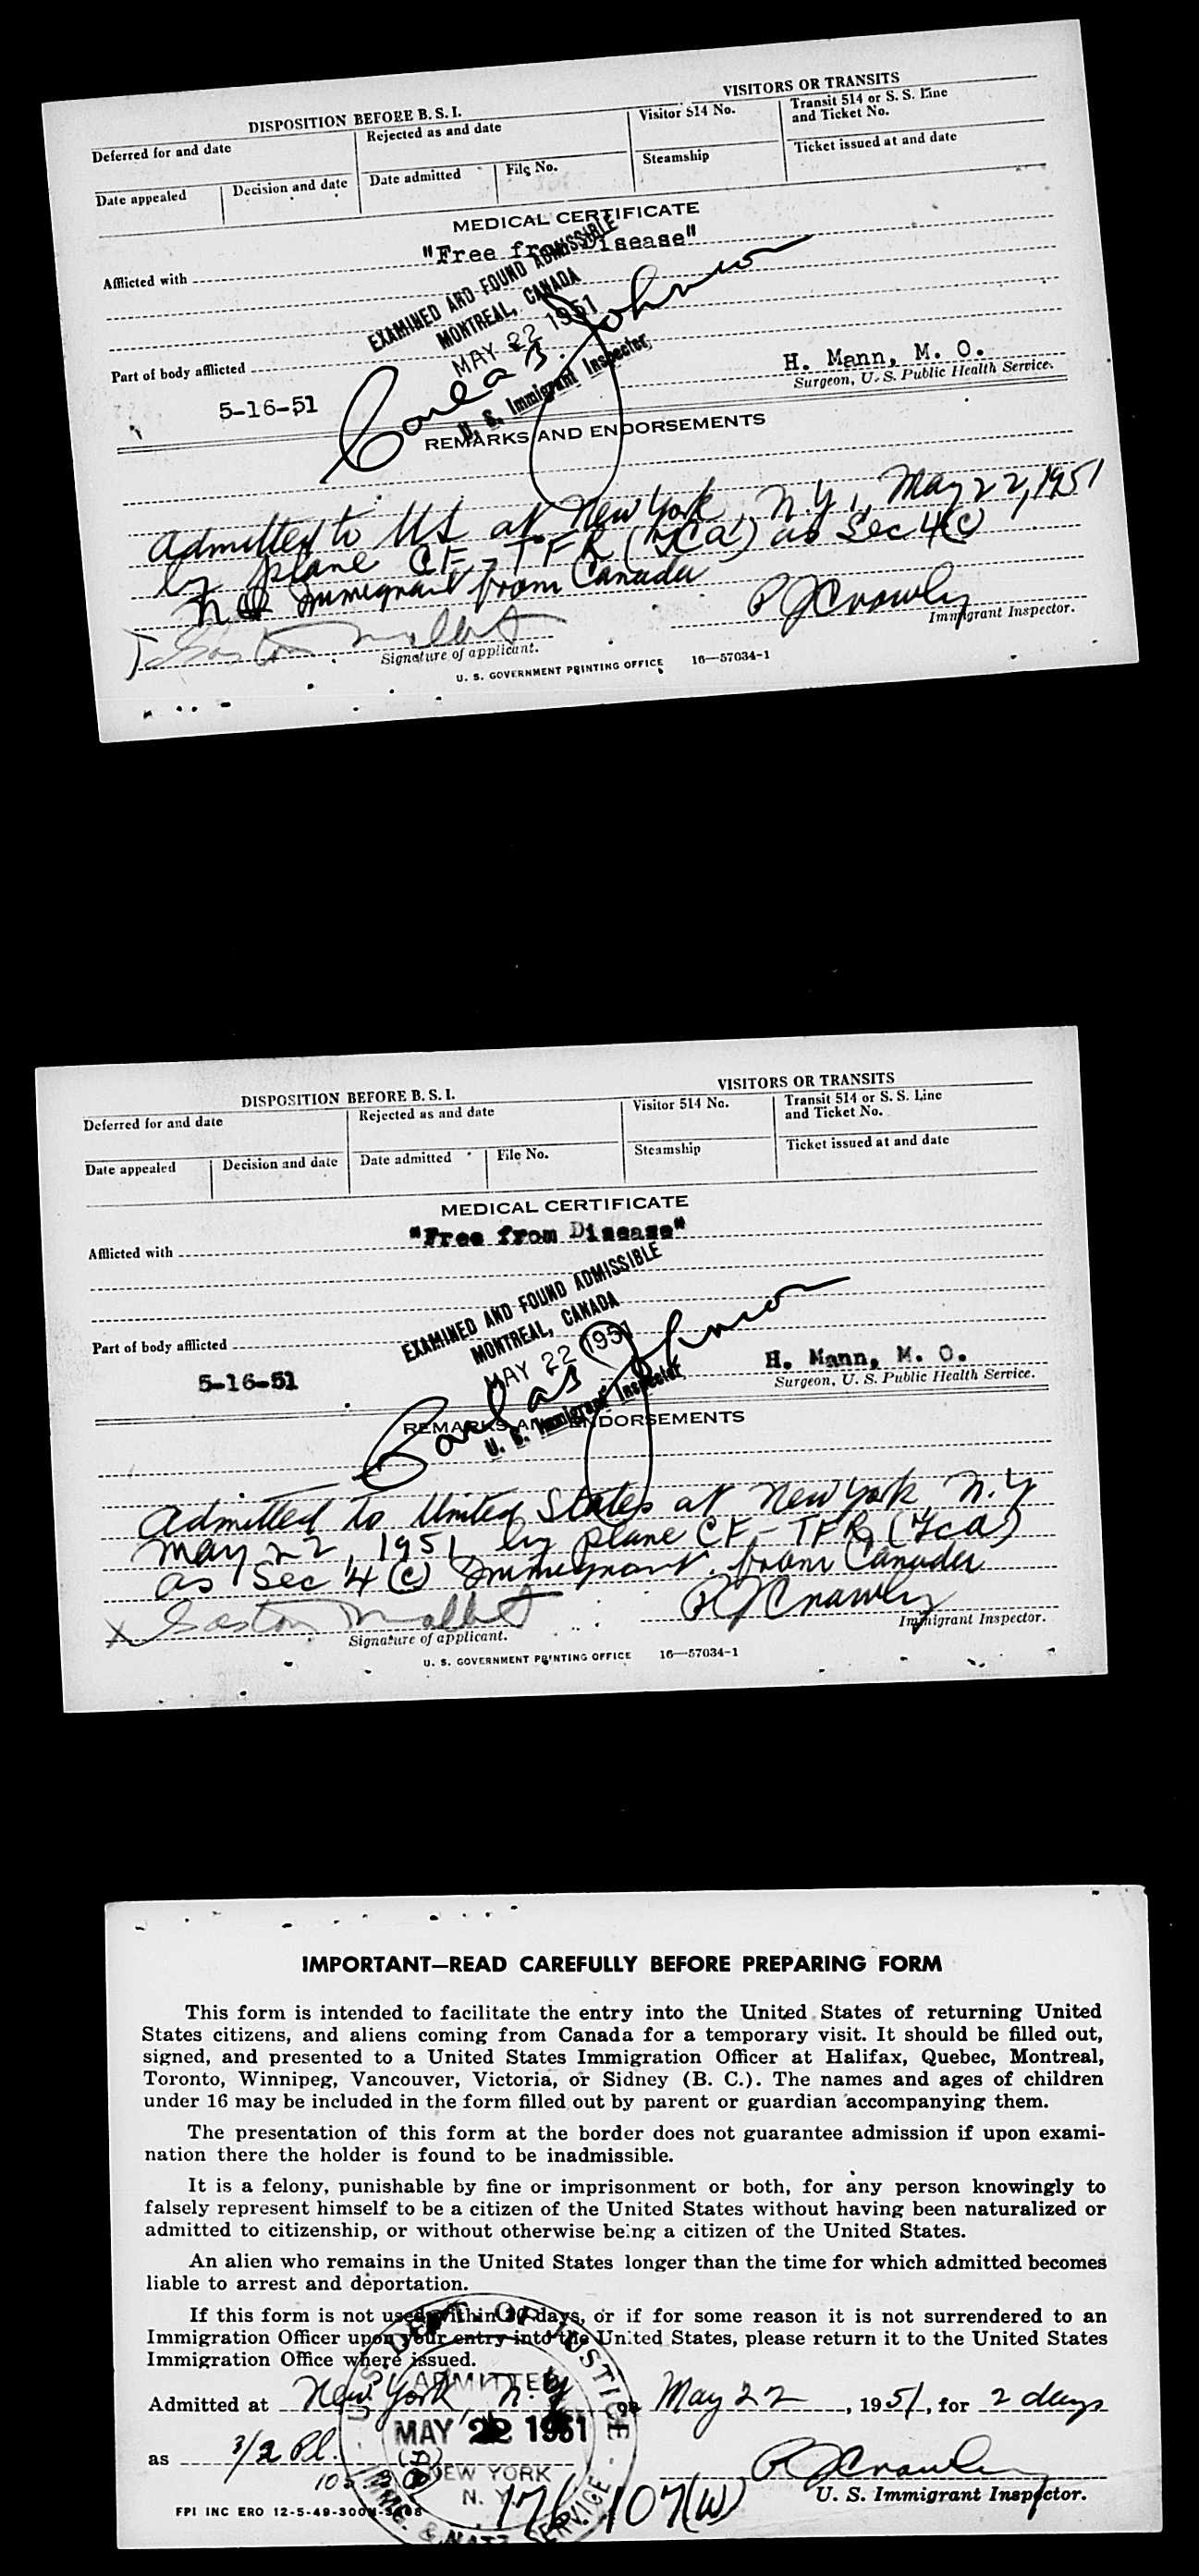 DISPOSITION BEFORE B. S. I.
VISITORS OR TRANSITS
Deferred for and date
Rejected as and date
Visitor 514 No.
Transit 514 or S. S. Line
and Ticket No.
Date appealed
Decision and date
Date admitted
File No.
Steamship
Ticket issued at and date
MEDICAL CERTIFICATE
"Free from Disease"
Afflicted with
EXAMINED AND FOUND ADMISSIBLE
MONTREAL, CANADA
MAY 22 1951
Johnson
U. S. Immigrant Inspector
Part of body afflicted
H. Mann, M. O.
5-16-51
Surgeon, U. S. Public Health Service.
REMARKS AND ENDORSEMENTS
Admitted to US at New York, N.Y., May 22, 1951
by plane CF-TFR (TCA) as Sec 4(c)
Immigrant from Canada
Gaston Mallet
P J Crowley
Signature of applicant.
Immigrant Inspector.
U. S. GOVERNMENT PRINTING OFFICE 16—57034-1
DISPOSITION BEFORE B. S. I.
VISITORS OR TRANSITS
Deferred for and date
Rejected as and date
Visitor 514 No.
Transit 514 or S. S. Line
and Ticket No.
Date appealed
Decision and date
Date admitted
File No.
Steamship
Ticket issued at and date
MEDICAL CERTIFICATE
"Free from Disease"
Afflicted with
EXAMINED AND FOUND ADMISSIBLE
MONTREAL, CANADA
MAY 22 1951
Johnson
U. S. Immigrant Inspector
Part of body afflicted
H. Mann, M. O.
5-16-51
Surgeon, U. S. Public Health Service.
REMARKS AND ENDORSEMENTS
Admitted to United States at New York, N.Y
May 22, 1951 by plane CF-TFR (TCA)
as Sec 4(c) Immigrant from Canada
X Gaston Mallet
P J Crowley
Signature of applicant.
Immigrant Inspector.
U. S. GOVERNMENT PRINTING OFFICE 16—57034-1
IMPORTANT—READ CAREFULLY BEFORE PREPARING FORM
This form is intended to facilitate the entry into the United States of returning United
States citizens, and aliens coming from Canada for a temporary visit. It should be filled out,
signed, and presented to a United States Immigration Officer at Halifax, Quebec, Montreal,
Toronto, Winnipeg, Vancouver, Victoria, or Sidney (B. C.). The names and ages of children
under 16 may be included in the form filled out by parent or guardian accompanying them.
The presentation of this form at the border does not guarantee admission if upon exami-
nation there the holder is found to be inadmissible.
It is a felony, punishable by fine or imprisonment or both, for any person knowingly to
falsely represent himself to be a citizen of the United States without having been naturalized or
admitted to citizenship, or without otherwise being a citizen of the United States.
An alien who remains in the United States longer than the time for which admitted becomes
liable to arrest and deportation.
If this form is not used within 30 days, or if for some reason it is not surrendered to an
Immigration Officer upon your entry into the United States, please return it to the United States
Immigration Office where issued.
Admitted at New York, N.Y on May 22, 1951, for 2 days
as 3/2 Pl.
U. S. DEPT. OF JUSTICE
ADMITTED
MAY 22 1951
NEW YORK
N. Y.
IMMG. & NATZ. SERVICE
P J Crowley
107(W)
U. S. Immigrant Inspector.
FPI INC ERO 12-5-49-300M